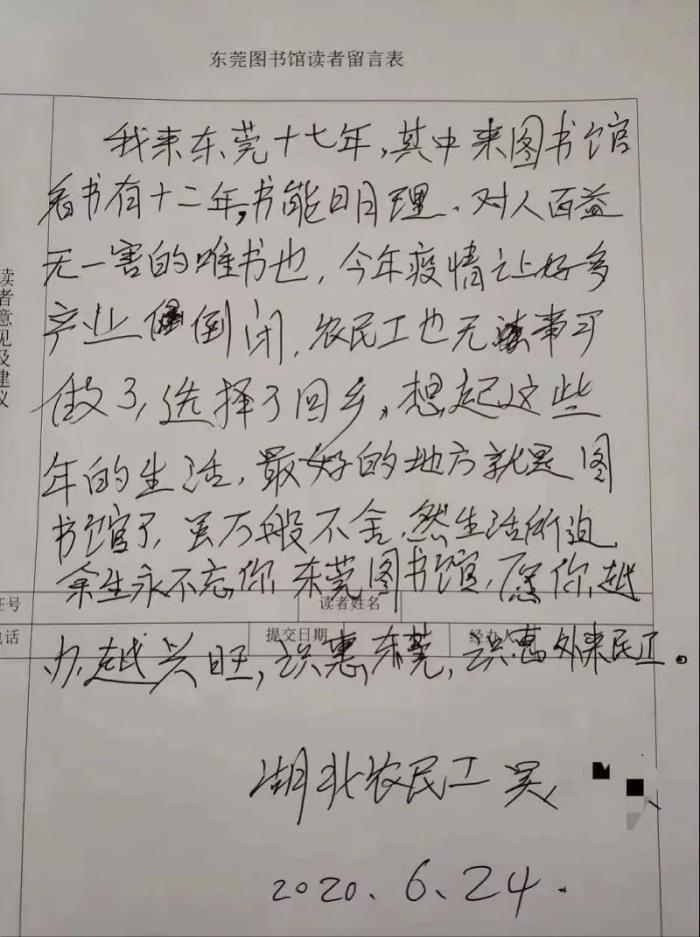 东莞图书馆读者留言表
我来东莞十七年,其中来图书馆
看书有十二年,书能明理、对人百益
无一害的唯书也,今年疫情让好多
产业倒闭,农民工也无事可
做了,选择了回乡,想起这些
年的生活,最好的地方就是图
书馆了,虽万般不舍,然生活所迫,
余生永不忘你,东莞图书馆,愿你越
办越兴旺,识惠东莞,识惠外来民工。
湖北农民工 吴
2020.6.24.
读者意见及建议
证号
读者姓名
电话
提交日期
经办人